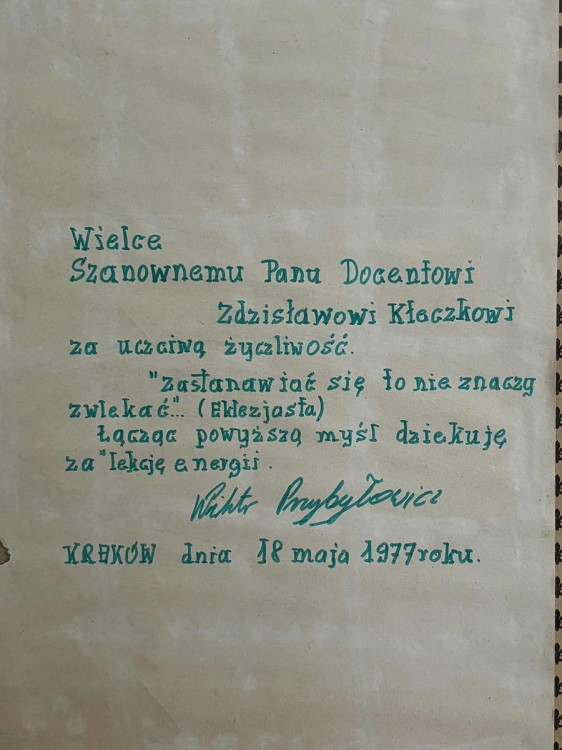 Wielce
Szanownemu Panu Docentowi
Zdzisławowi Kłeczkowi
za uczciwą życzliwość.
"zastanawiać się to nie znaczy
zwlekać"... (Eklezjasta)
Łącząc powyższą myśl dziekuję
za "lekcję energii.
Wiktor Przybyłowicz
KRAKÓW dnia 18 maja 1977 roku.